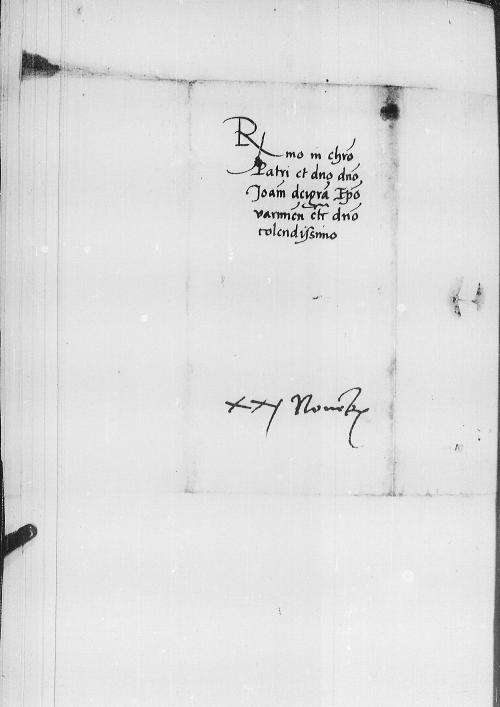 Rmo in chro
Patri et dno dno
Joam dei gra Epo
varmien etc dno
colendissimo
XXI Novembr